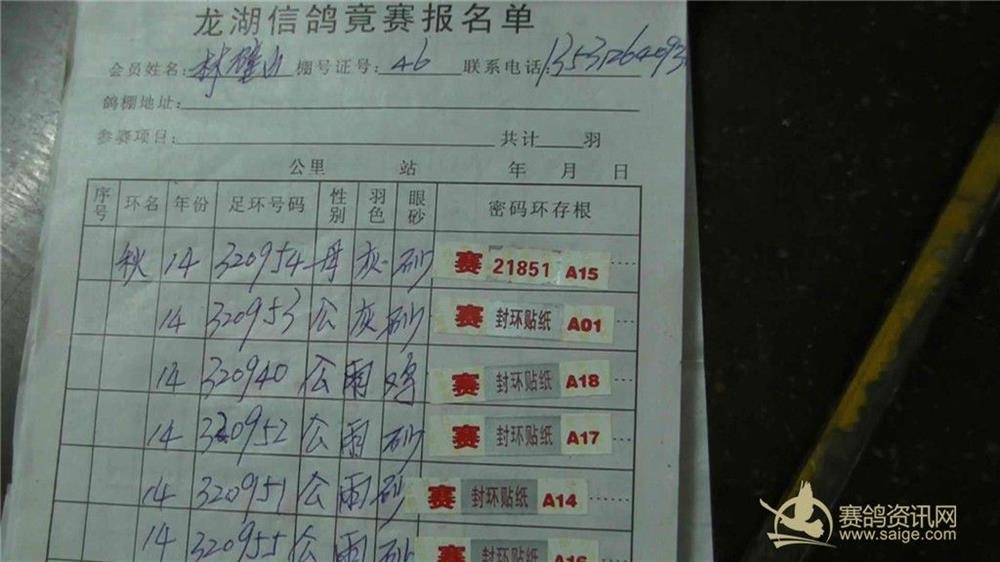 龙湖信鸽竞赛报名单
会员姓名:林璧山 棚号证号:46 联系电话:13531264093
鸽棚地址:
参赛项目: 共计 羽
公里 站 年 月 日
序号 环名 年份 足环号码 性别 羽色 眼砂 密码环存根
秋 14 320954 母 灰 砂 赛 21851 A15
14 320953 公 灰 砂 赛 封环贴纸 A01
14 320940 公 雨 鸡 赛 封环贴纸 A18
14 320952 公 雨 砂 赛 封环贴纸 A17
14 320951 公 雨 砂 赛 封环贴纸 A14
14 320955 公 雨 砂 赛 封环贴纸 A16
赛鸽资讯网
www.saige.com